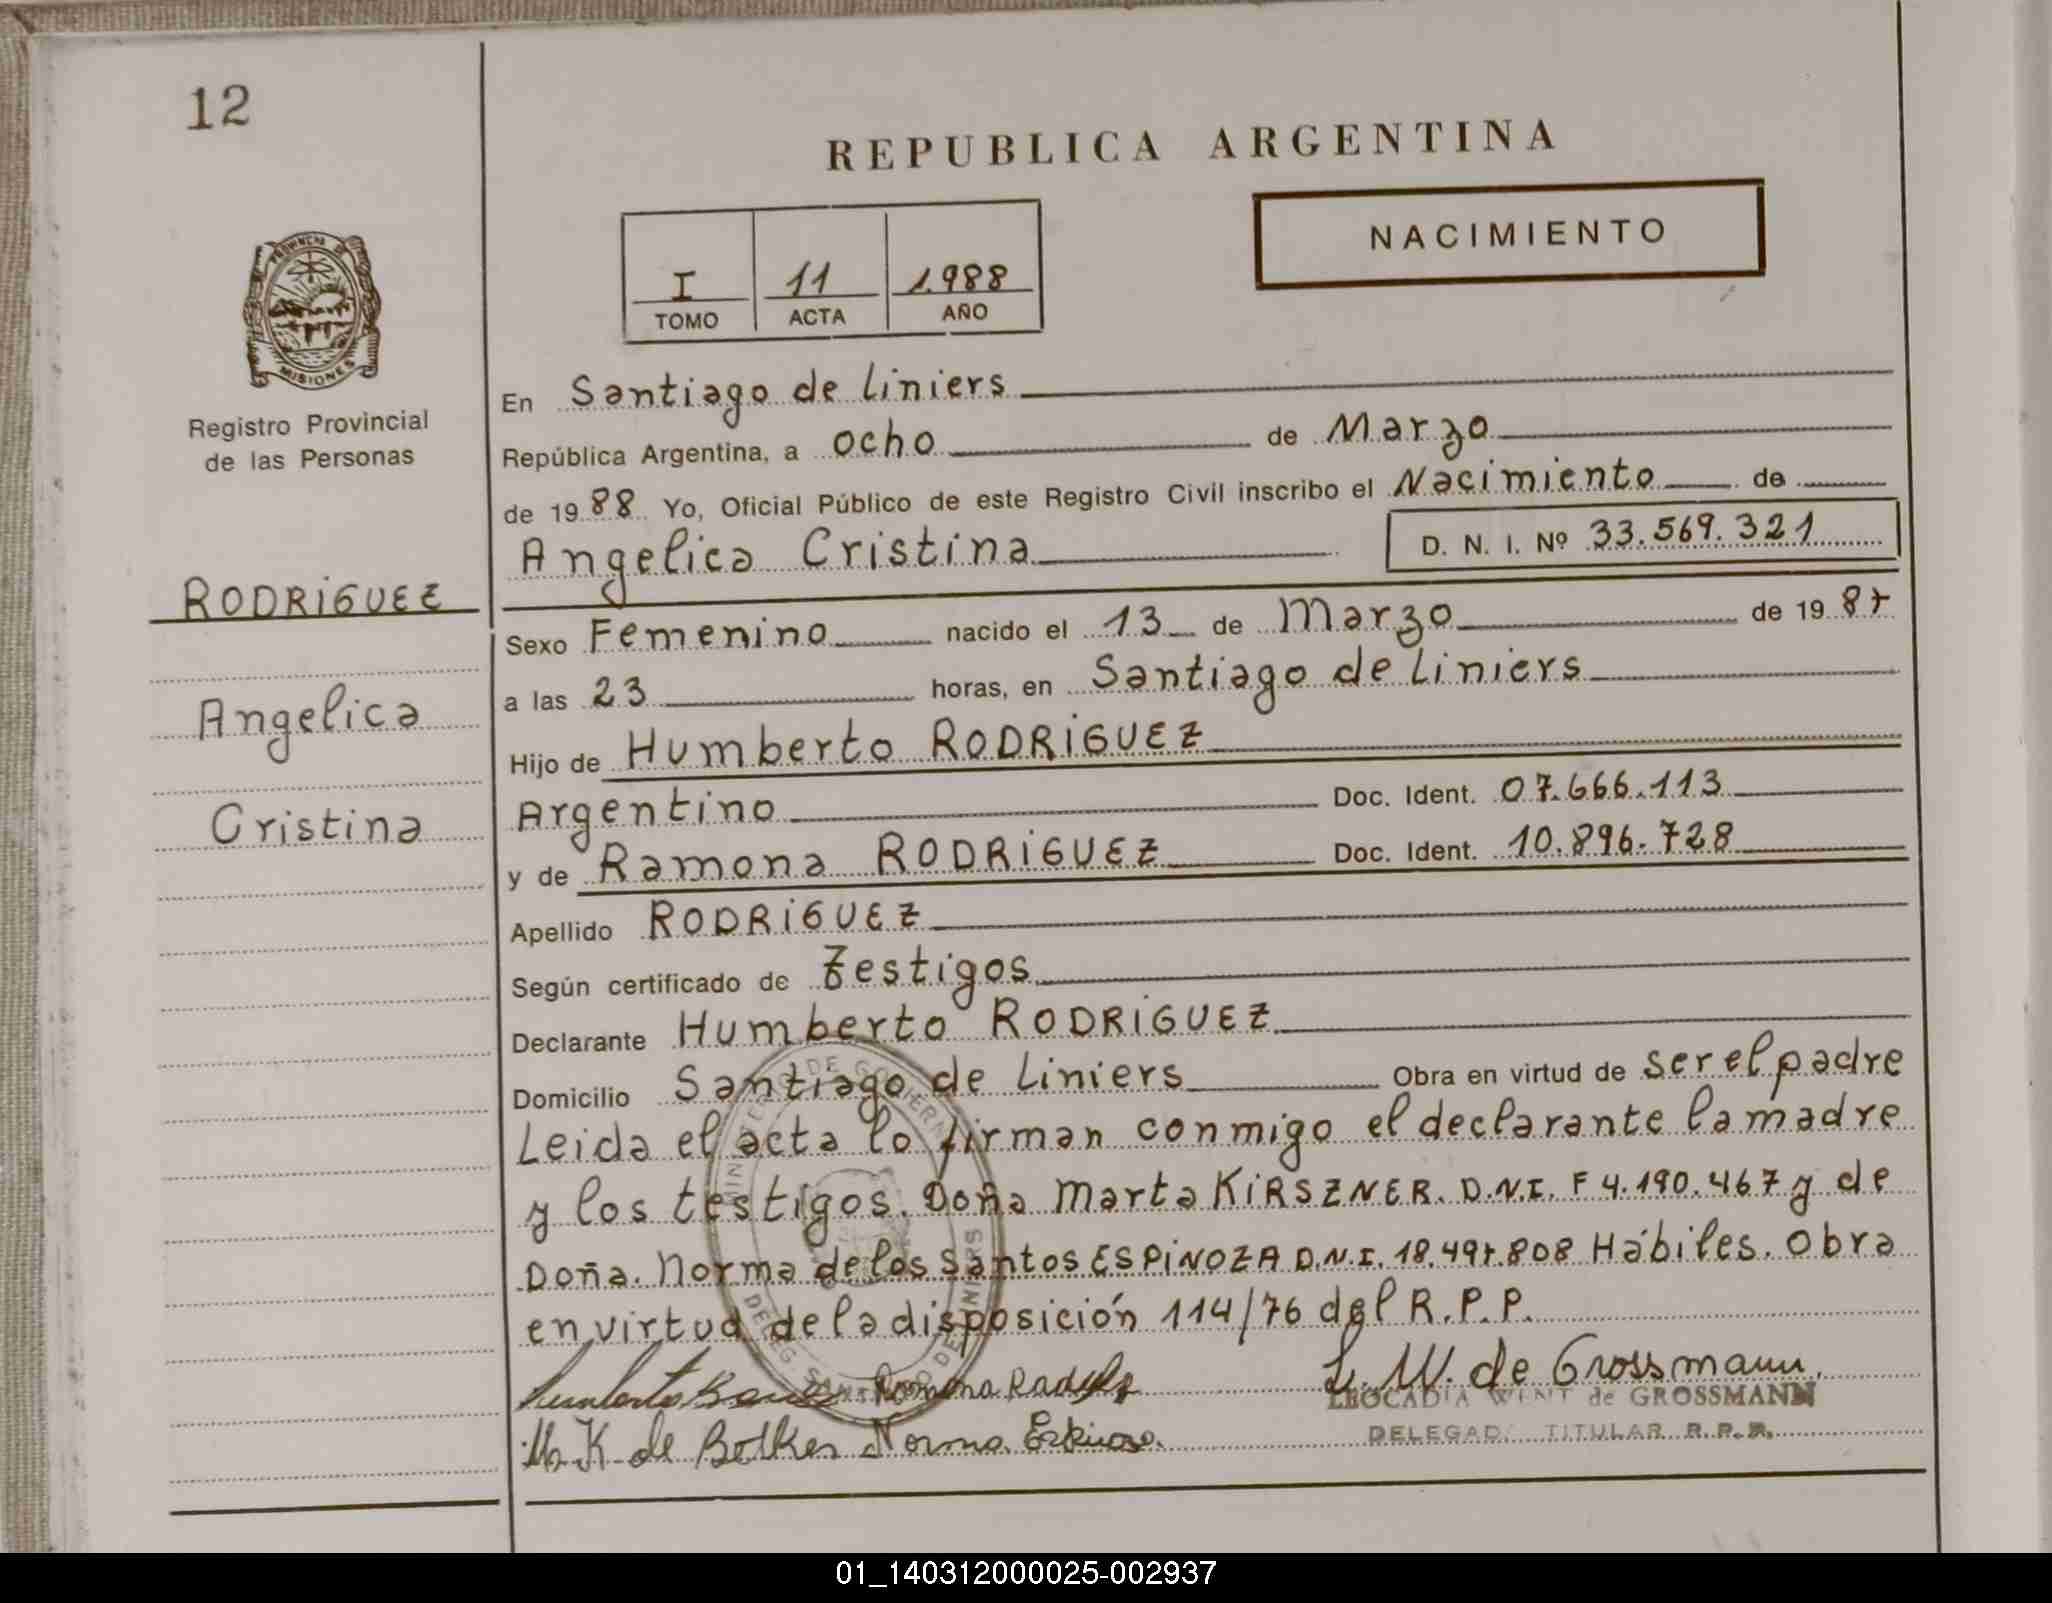 12
REPUBLICA ARGENTINA
NACIMIENTO
I 11 1.988
TOMO ACTA AÑO
PROVINCIA DE
MISIONES
Registro Provincial
de las Personas
RODRIGUEZ
Angelica
Cristina
En Santiago de Liniers
República Argentina, a ocho de Marzo
de 1988 Yo, Oficial Público de este Registro Civil inscribo el Nacimiento de
Angelica Cristina D. N. I. Nº 33.569.321
Sexo Femenino nacido el 13 de Marzo de 1987
a las 23 horas, en Santiago de Liniers
Hijo de Humberto RODRIGUEZ
Argentino Doc. Ident. 07.666.113
y de Ramona RODRIGUEZ Doc. Ident. 10.896.728
Apellido RODRIGUEZ
Según certificado de Testigos
Declarante Humberto RODRIGUEZ
Domicilio Santiago de Liniers Obra en virtud de ser el padre
Leida el acta lo firman conmigo el declarante la madre
y los testigos. Doña Marta KIRSZNER. D.N.I. F 4.190.467 y de
Doña. Norma de los Santos ESPINOZA D.N.I. 18.497.808 Hábiles. Obra
en virtud de la disposición 114/76 del R.P.P.
MINISTERIO DE GOBIERNO
DELEG SANTIAGO DE LINIERS
Humberto Ramona L. W. de Grossmann
LEOCADIA WINT de GROSSMANN
M. K. de Norma
DELEGADA TITULAR R.P.P.
01_140312000025-002937